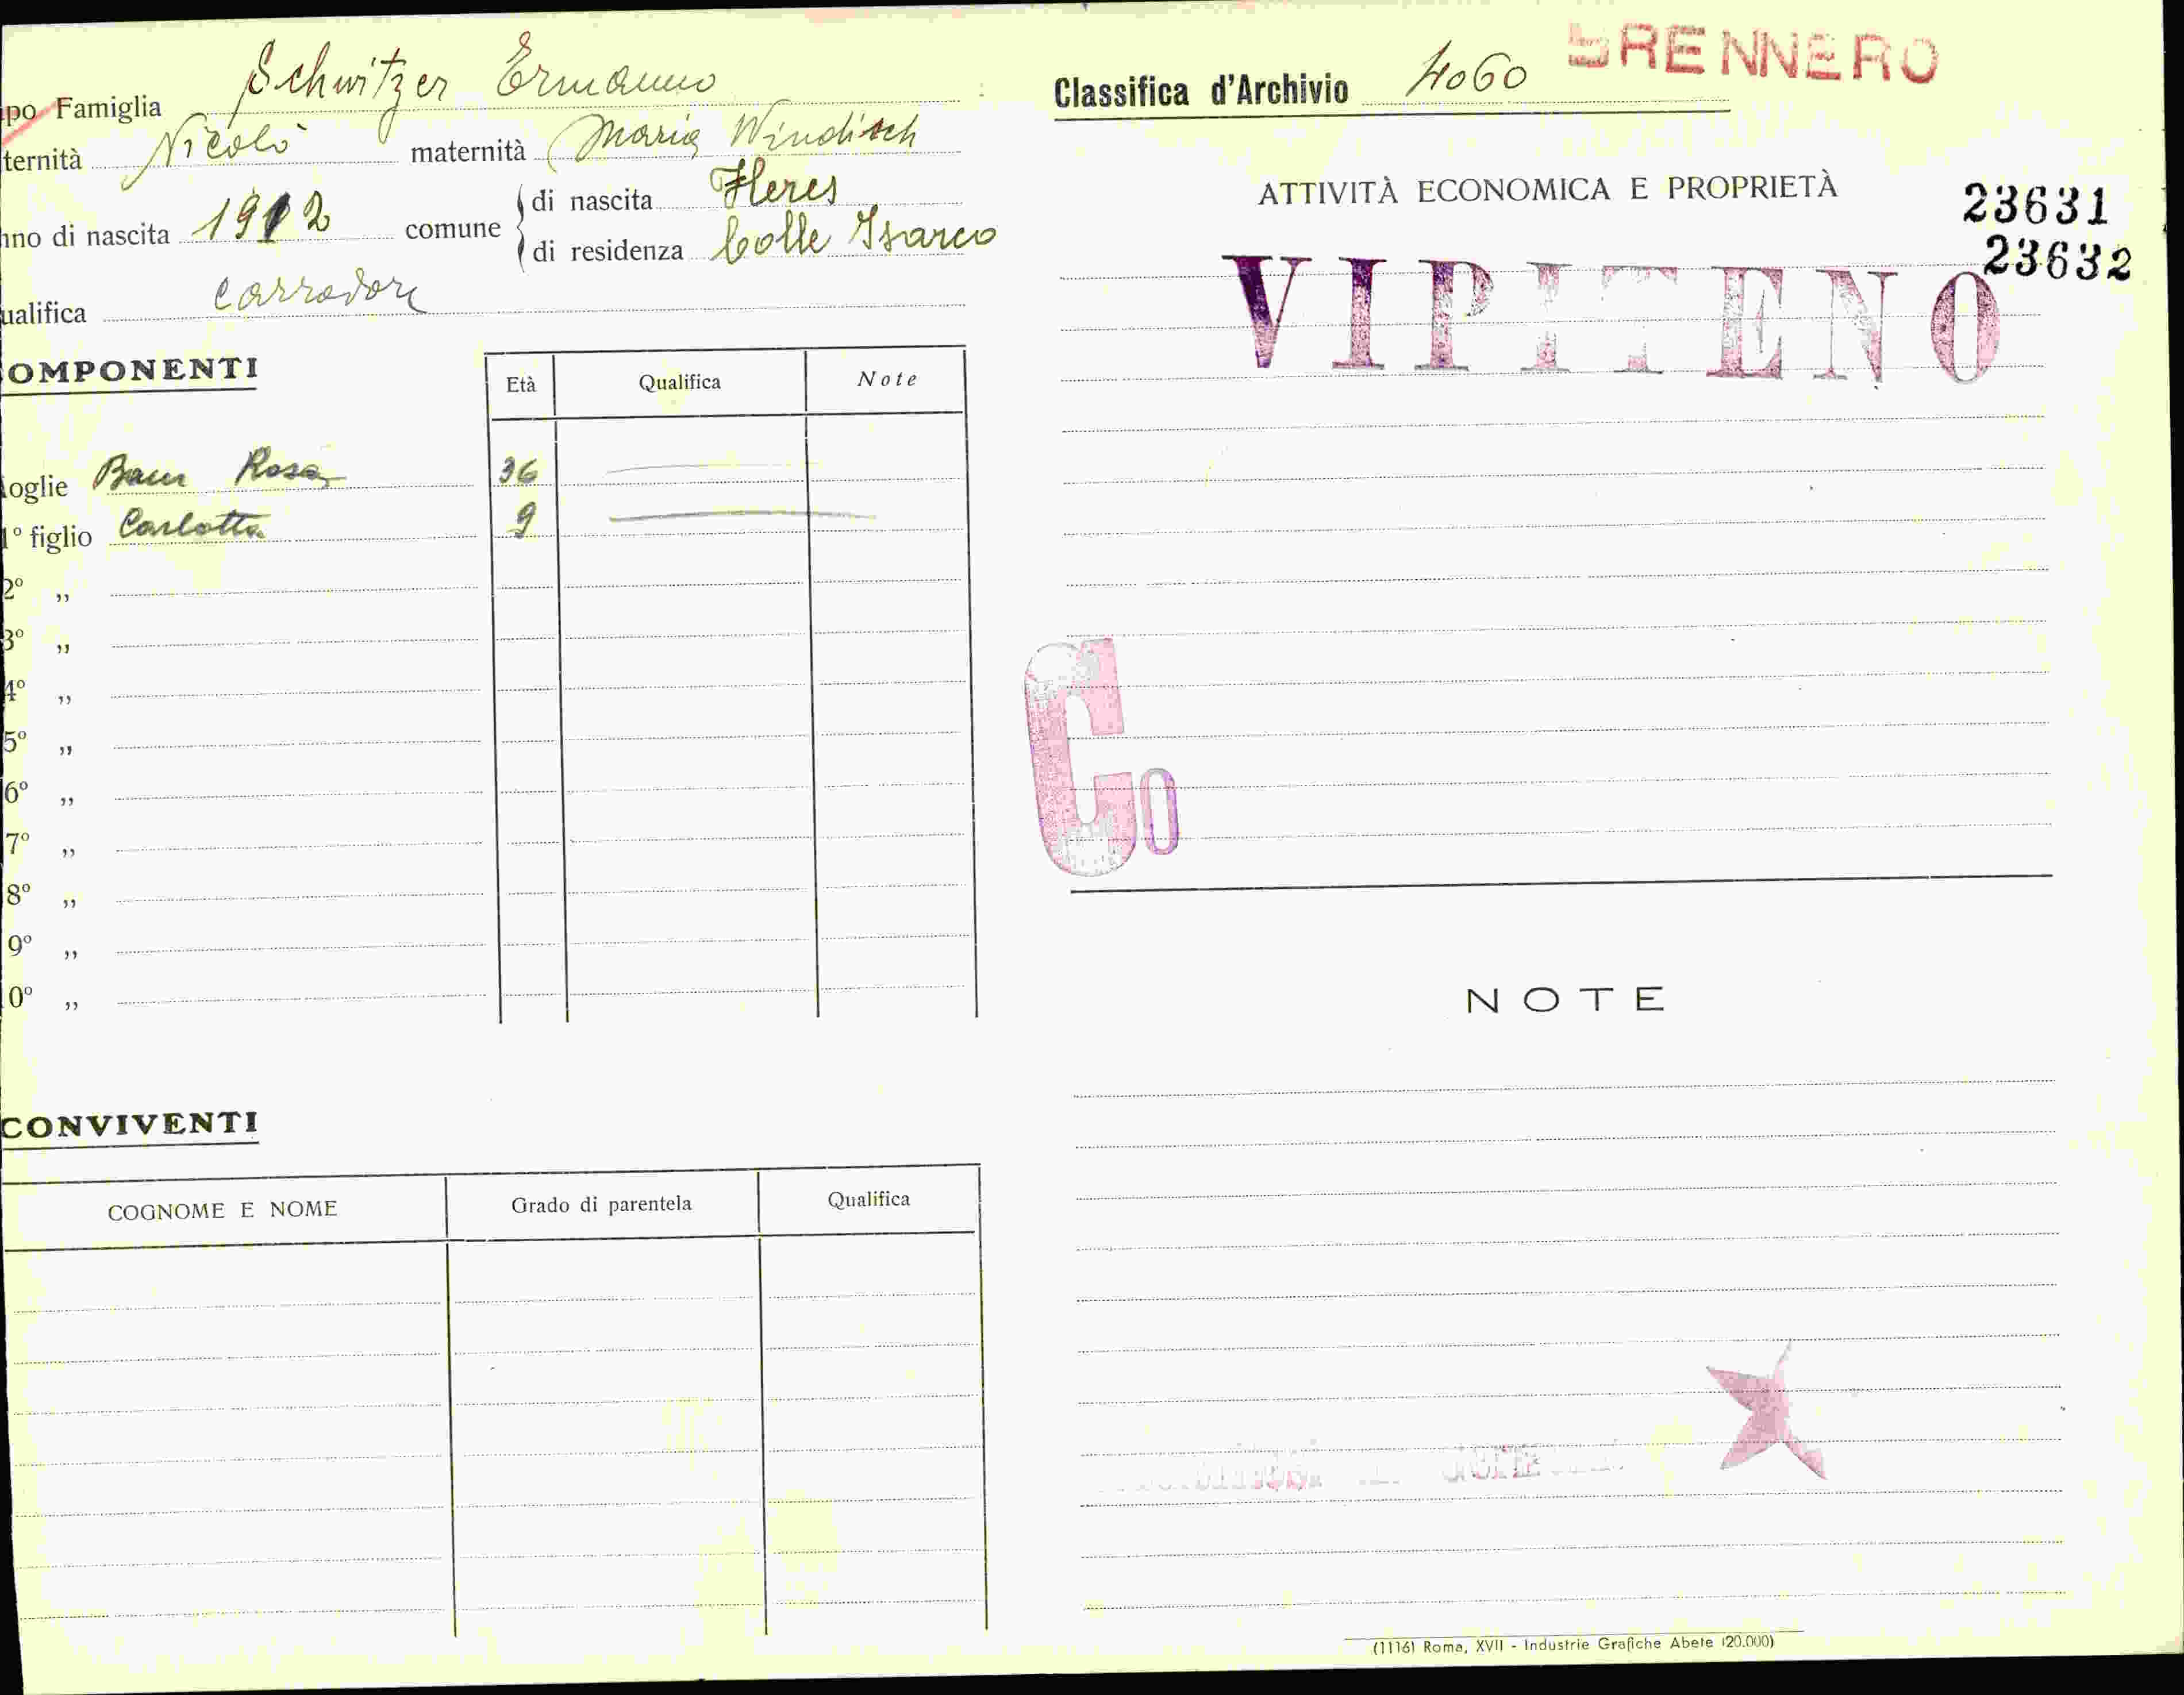 po Famiglia Schwitzer Ermanno
ternità Nicolò maternità Maria Windisch
nno di nascita 1912 comune di nascita Fleres
di residenza Colle Isarco
ualifica carradore
OMPONENTI
Età Qualifica Note
oglie Baur Rosa 36
1º figlio Carlotta 9
2º ,,
3º ,,
4º ,,
5º ,,
6º ,,
7º ,,
8º ,,
9º ,,
0º ,,
CONVIVENTI
COGNOME E NOME Grado di parentela Qualifica
Classifica d'Archivio 4060 BRENNERO
ATTIVITÀ ECONOMICA E PROPRIETÀ
23631
23632
VIPITENO
Co
NOTE
(1116) Roma, XVII - Industrie Grafiche Abete (20.000)